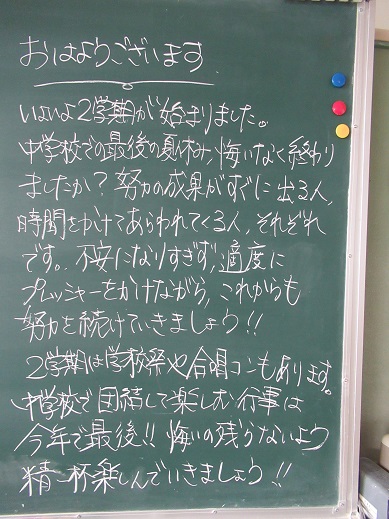 おはようございます
いよいよ2学期が始まりました。
中学校での最後の夏休み、悔いなく終わり
ましたか？努力の成果がすぐに出る人、
時間をかけてあらわれてくる人、それぞれ
です。不安になりすぎず、適度に
プレッシャーをかけながら、これからも
努力を続けていきましょう!!
2学期は学校祭や合唱コンもあります。
中学校で団結して楽しむ行事は
今年で最後!!悔いの残らないよう
精一杯楽しんでいきましょう!!